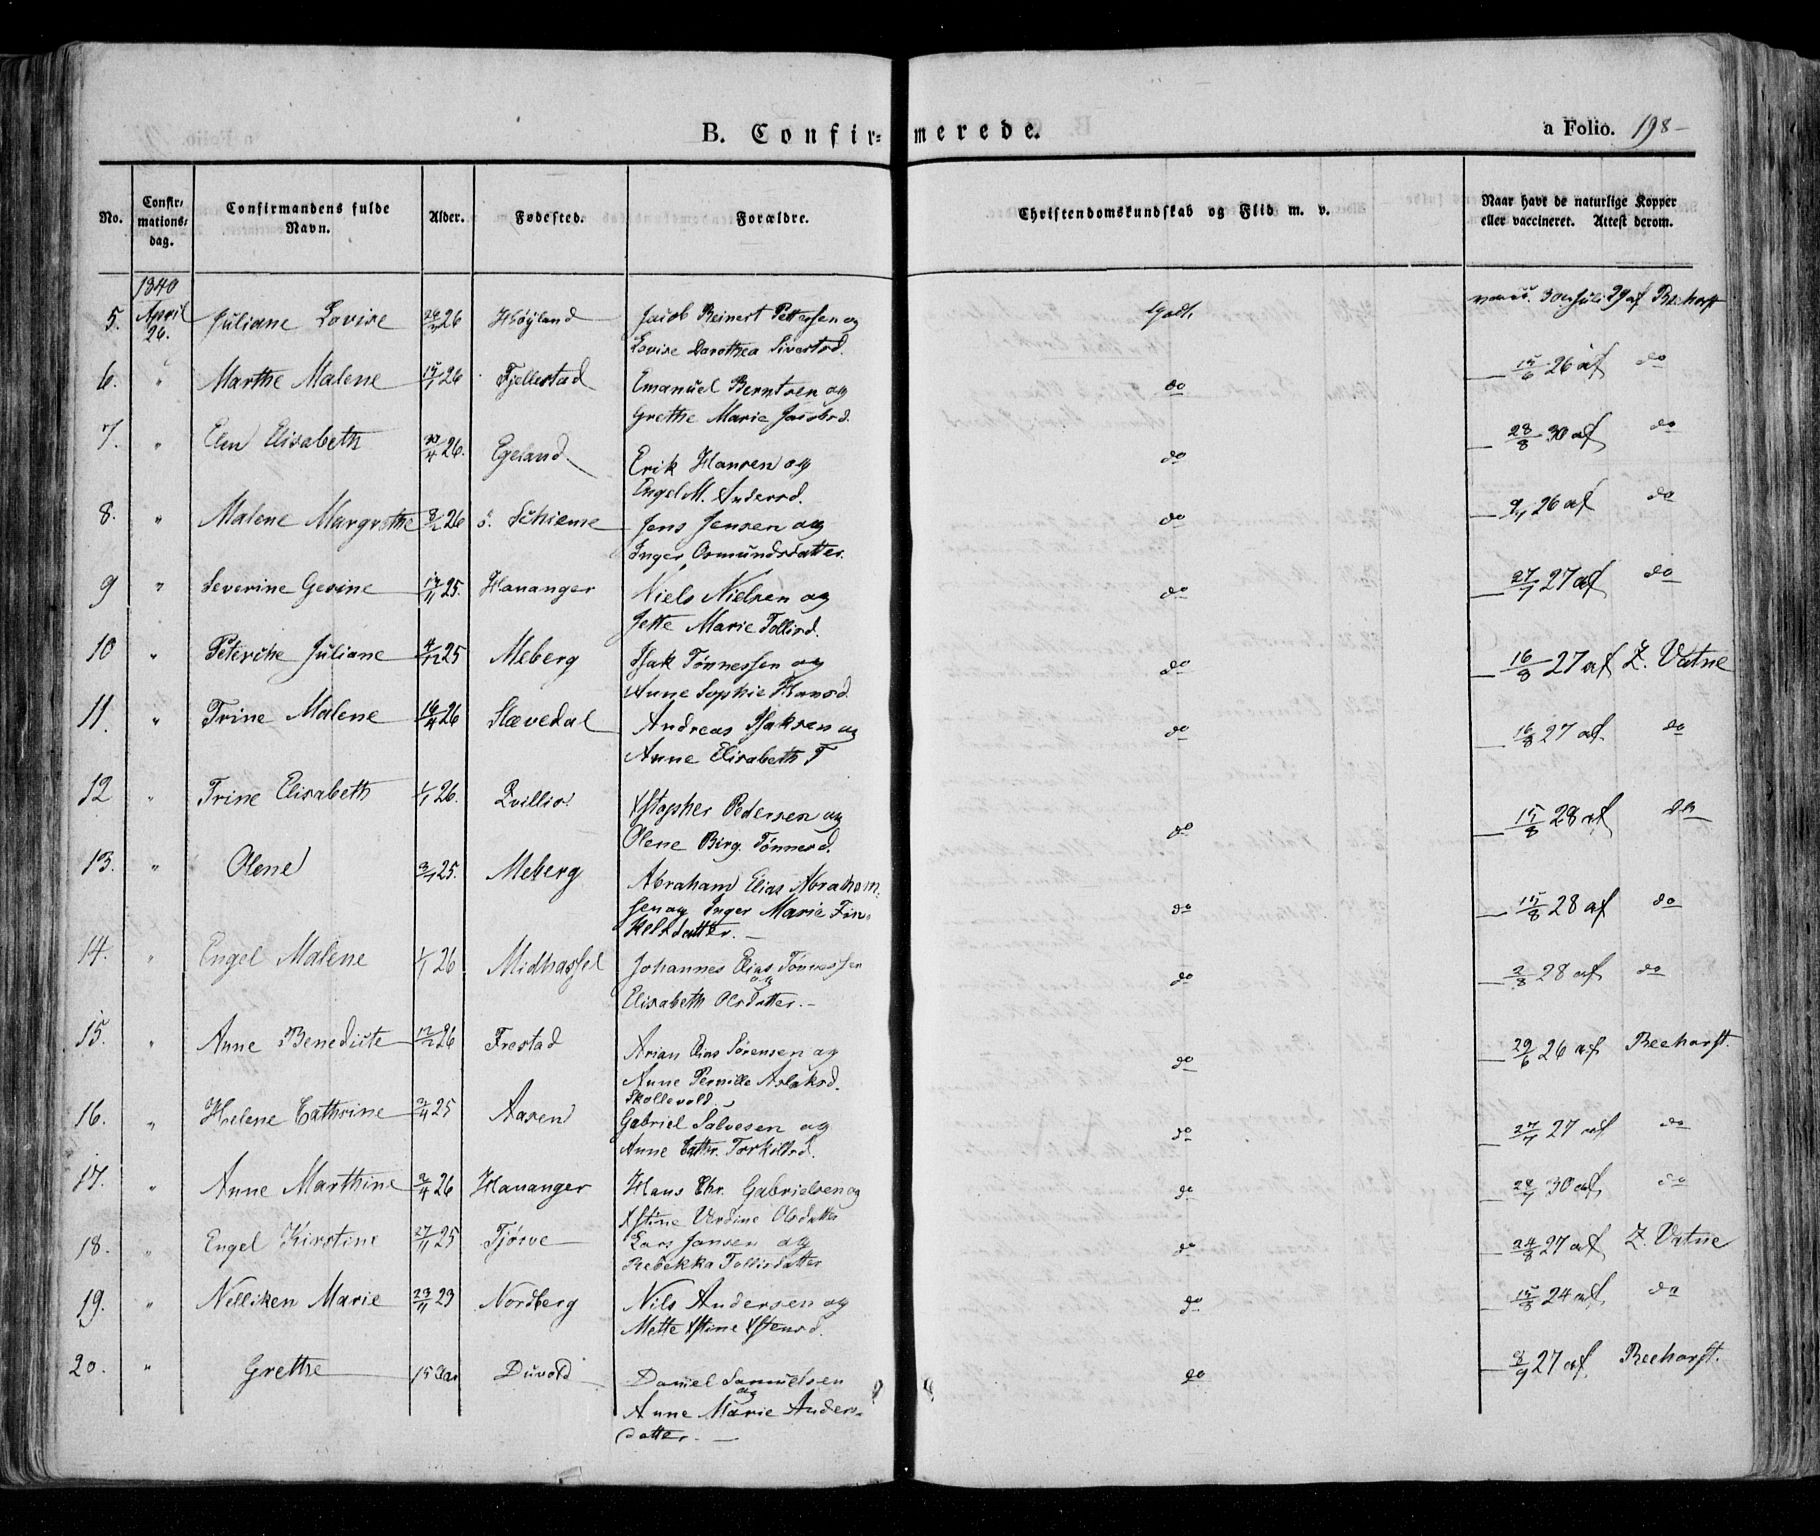 B. Confir=merede.
a Folio. 198-
No.
Confir=
mations=
dag.
Confirmandens fulde
Navn.
Alder.
Fødested.
Forældre.
Christendomskundskab og Flid m. v.
Naar havt de naturlige Kopper
eller vaccineret. Attest derom.
1840
5. April 26. Juliane Lovise 26 Høyland Jacob Reinert Pettersen og Godt. Juli 29 af Reehorst
Lovise Dorothea Sivertsd.
6. " Marthe Malene 26 Fjellestad Emanuel Berntsen og do 15/6 26 af do
Grethe Marie Jacobsd.
7. " Elen Elisabeth 26. Egeland Erik Hansen og do 28/8 30 af do
Engel M. Andersd.
8. " Malene Margrethe 26 s. Schieme Jens Jensen og do 26 af do
Inger Osmundsdatter.
9 " Severine Gesine 25. Hananger Niels Nielsen og do 27/7 27 af do
Jette Marie Tollisd.
10 " Peterike Juliane 4/12 25 Meberg Isak Tønnessen og do 16/8 27 af Z. Vatne
Anne Sophie Hansd.
11. " Trine Malene 16/4 26 Stævedal Andreas Isaksen og do 16/8 27 af do
Anne Elisabeth T
12 " Trine Elisabeth 1/1 26. Qvillio Xstopher Pedersen og do 15/8 28 af do
Olene Birg. Tønnesd.
13. " Olene 25. Meberg Abraham Elias Abraham=
sen og Inger Marie Fin= do 15/8 28 af do
kelsdatter. —
14. " Engel Malene 1/1 26 Midhassel Johannes Elias Tønnessen
og do 2/8 28 af do
Elisabeth Olsdatter. –
15. " Anne Benedicte 26 Frestad Arian Elias Sørensen og do 29/6 26 af Reehorst.
Anne Pernille Aslaksd.
Skollevold.
16. " Helene Cathrine 25 Aasen Gabriel Salvesen og do 27/7 27 af do
Anne Cathr. Torkildsd.
17. " Anne Marthine 26 Hananger Hans Chr. Gabrielsen og do 30 af do
Xstine Verdine Olsdatter
18. " Engel Kirstine 27/11 25 Tjørve Lars Jansen og do 24/8 27 af Z. Vatne
Rebekka Tollisdatter
19. " Nelliken Marie 23/11 23 Nordberg Nils Andersen og do 15/8 24 af do
Mette Xstine Xstensd.
20. " Grethe 15 Aar Duvold Daniel Samuelsen do 8/9 27 af Reehorst.
og
Anne Marie Anders=
datter. —